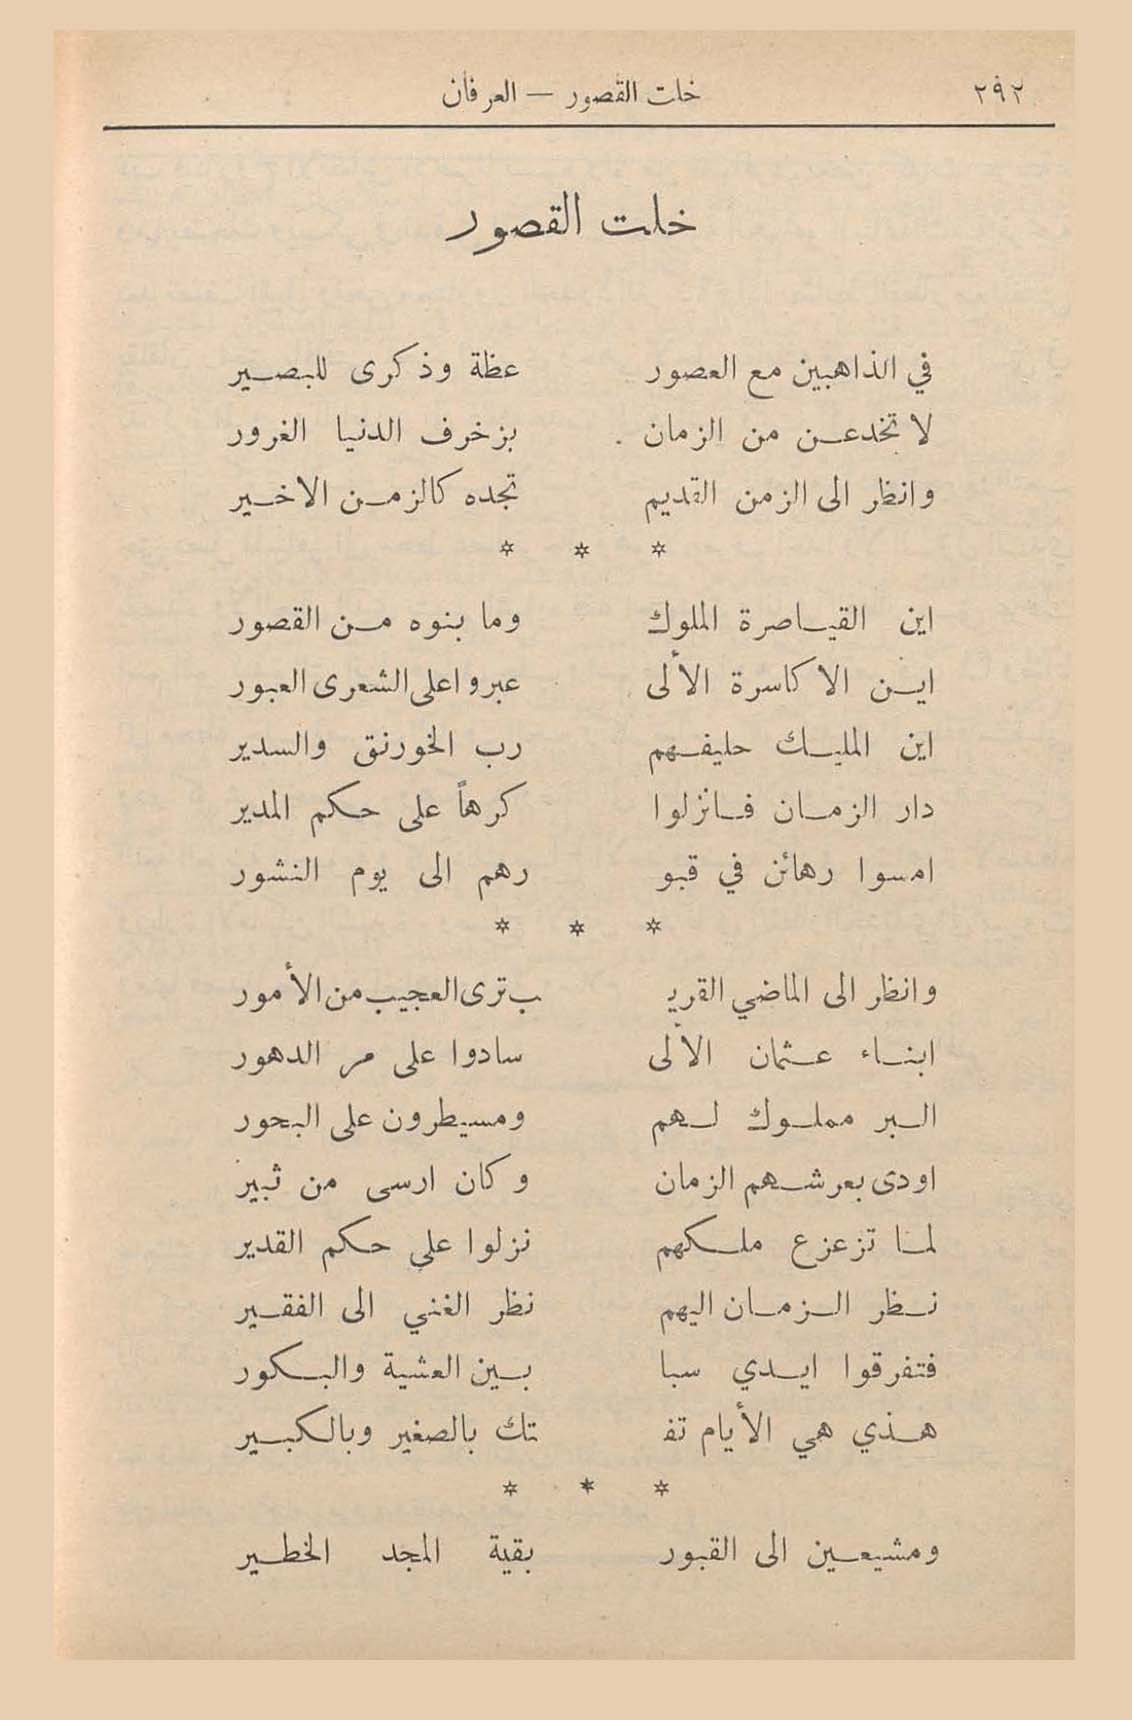 ٢٩٢
خلت القصور — العرفان
خلت القصور
في الذاهبين مع العصور عظة وذكرى للبصير
لا تخدعن من الزمان بزخرف الدنيا الغرور
وانظر الى الزمن القديم تجده كالزمن الاخير
* * *
اين القياصرة الملوك وما بنوه من القصور
اين الاكاسرة الألى عبروا على الشعرى العبور
اين المليك حليفهم رب الخورنق والسدير
دار الزمان فانزلوا كرهاً على حكم المدير
امسوا رهائن في قبو رهم الى يوم النشور
* * *
وانظر الى الماضي القريـ ـب ترى العجيب من الأمور
ابناء عثمان الألى سادوا على مر الدهور
البر مملوك لهم ومسيطرون على البحور
اودى بعرشهم الزمان وكان ارسى من ثبير
لما تزعزع ملكهم نزلوا على حكم القدير
نظر الزمان اليهم نظر الغني الى الفقير
فتفرقوا ايدي سبا بين العشية والبكور
هذي هي الأيام تفـ ـتك بالصغير وبالكبير
* * *
ومشيعين الى القبور بقية المجد الخطير